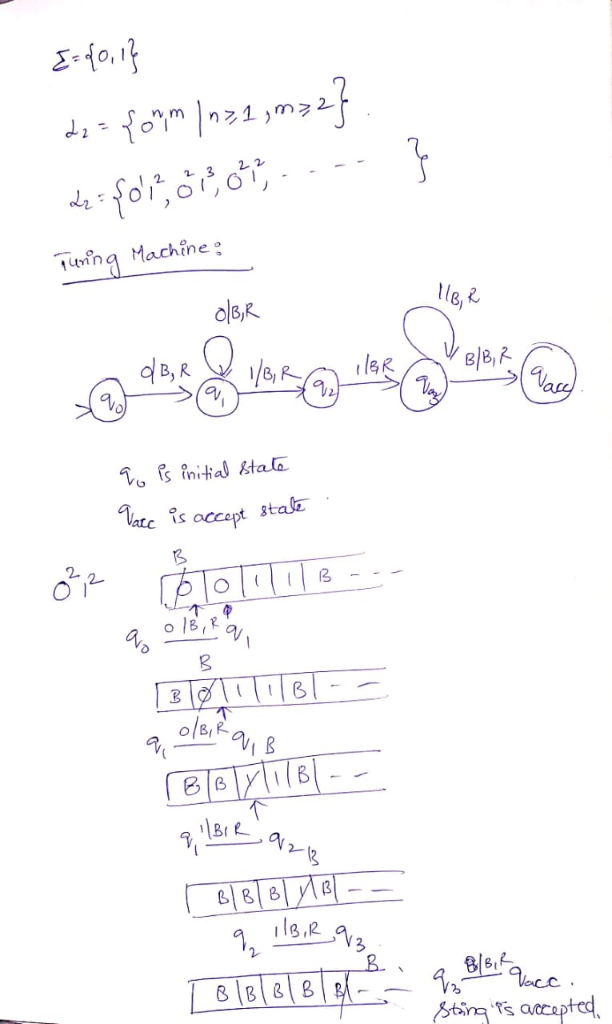 Σ={0,1}
L₂ = {0ⁿ1ᵐ | n≥1, m≥2}.
L₂ = {0¹1², 0²1³, 0²1², - - - - - }
Turing Machine:
0/B,R 1/B,R
0/B,R 1/B,R 1/B,R B/B,R
q₀ q₁ q₂ q₃ qacc
q₀ is initial state
qacc is accept state.
B
0²1² 0 0 1 1 B - - -
q₀ 0/B,R q₁
B
B 0 1 1 B - -
q₁ 0/B,R q₁ B
B B 1 1 B - -
q₁ 1/B,R q₂ B
B B B 1 B - -
q₂ 1/B,R q₃
B. q₃ B/B,R qacc.
B B B B B - - String is accepted.